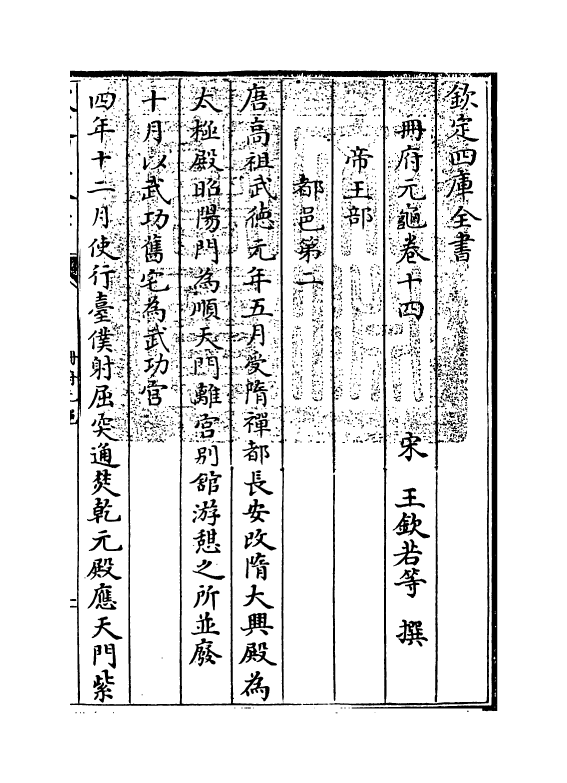 欽定四庫全書
冊府元龜卷十四　宋　王欽若等　撰
帝王部
都邑第二
唐高祖武徳元年五月受隋禪都長安改隋大興殿為
太極殿昭陽門為順天門離宮別舘游憩之所並廢
十月以武功舊宅為武功宮
四年十二月使行臺僕射屈突通焚乾元殿應天門紫